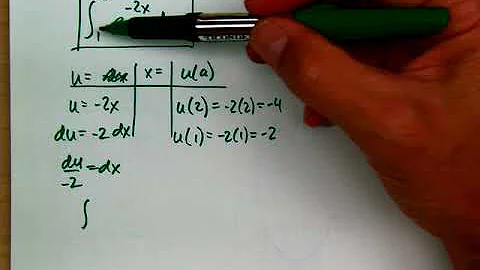 ∫₁ -2x
u = | x = | u(a)
u = -2x | u(2) = -2(2) = -4
du = -2 dx | u(1) = -2(1) = -2
du/-2 = dx
∫